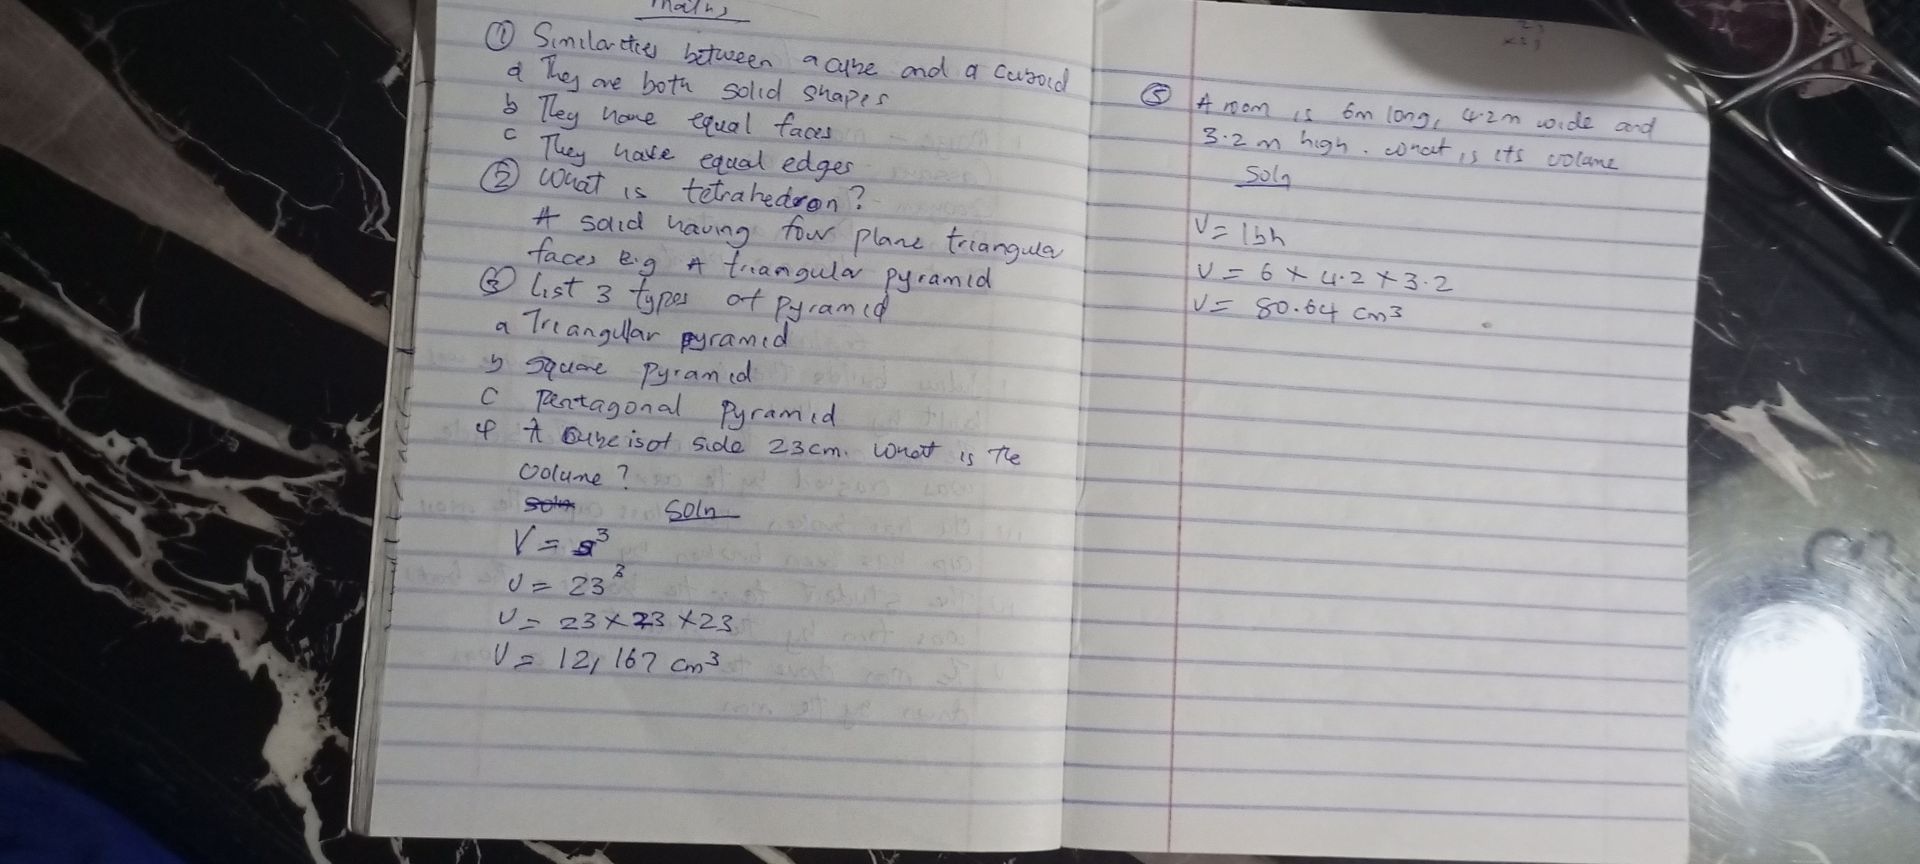 Maths
① Similarities between a cube and a cuboid
a They are both solid shapes
b They have equal faces
c They have equal edges
② What is tetrahedron?
A solid having four plane triangular
faces e.g A triangular pyramid
③ List 3 types of pyramid
a Triangular pyramid
b Square pyramid
c Pentagonal Pyramid
4 A cube is of side 23cm. What is the
Volume?
soln Soln
V = s³
V = 23³
V = 23 × 23 × 23
V = 12,167 cm³
⑤ A room is 6m long, 4.2m wide and
3.2m high. What is its volume
Soln
V = lbh
V = 6 × 4.2 × 3.2
V = 80.64 cm³